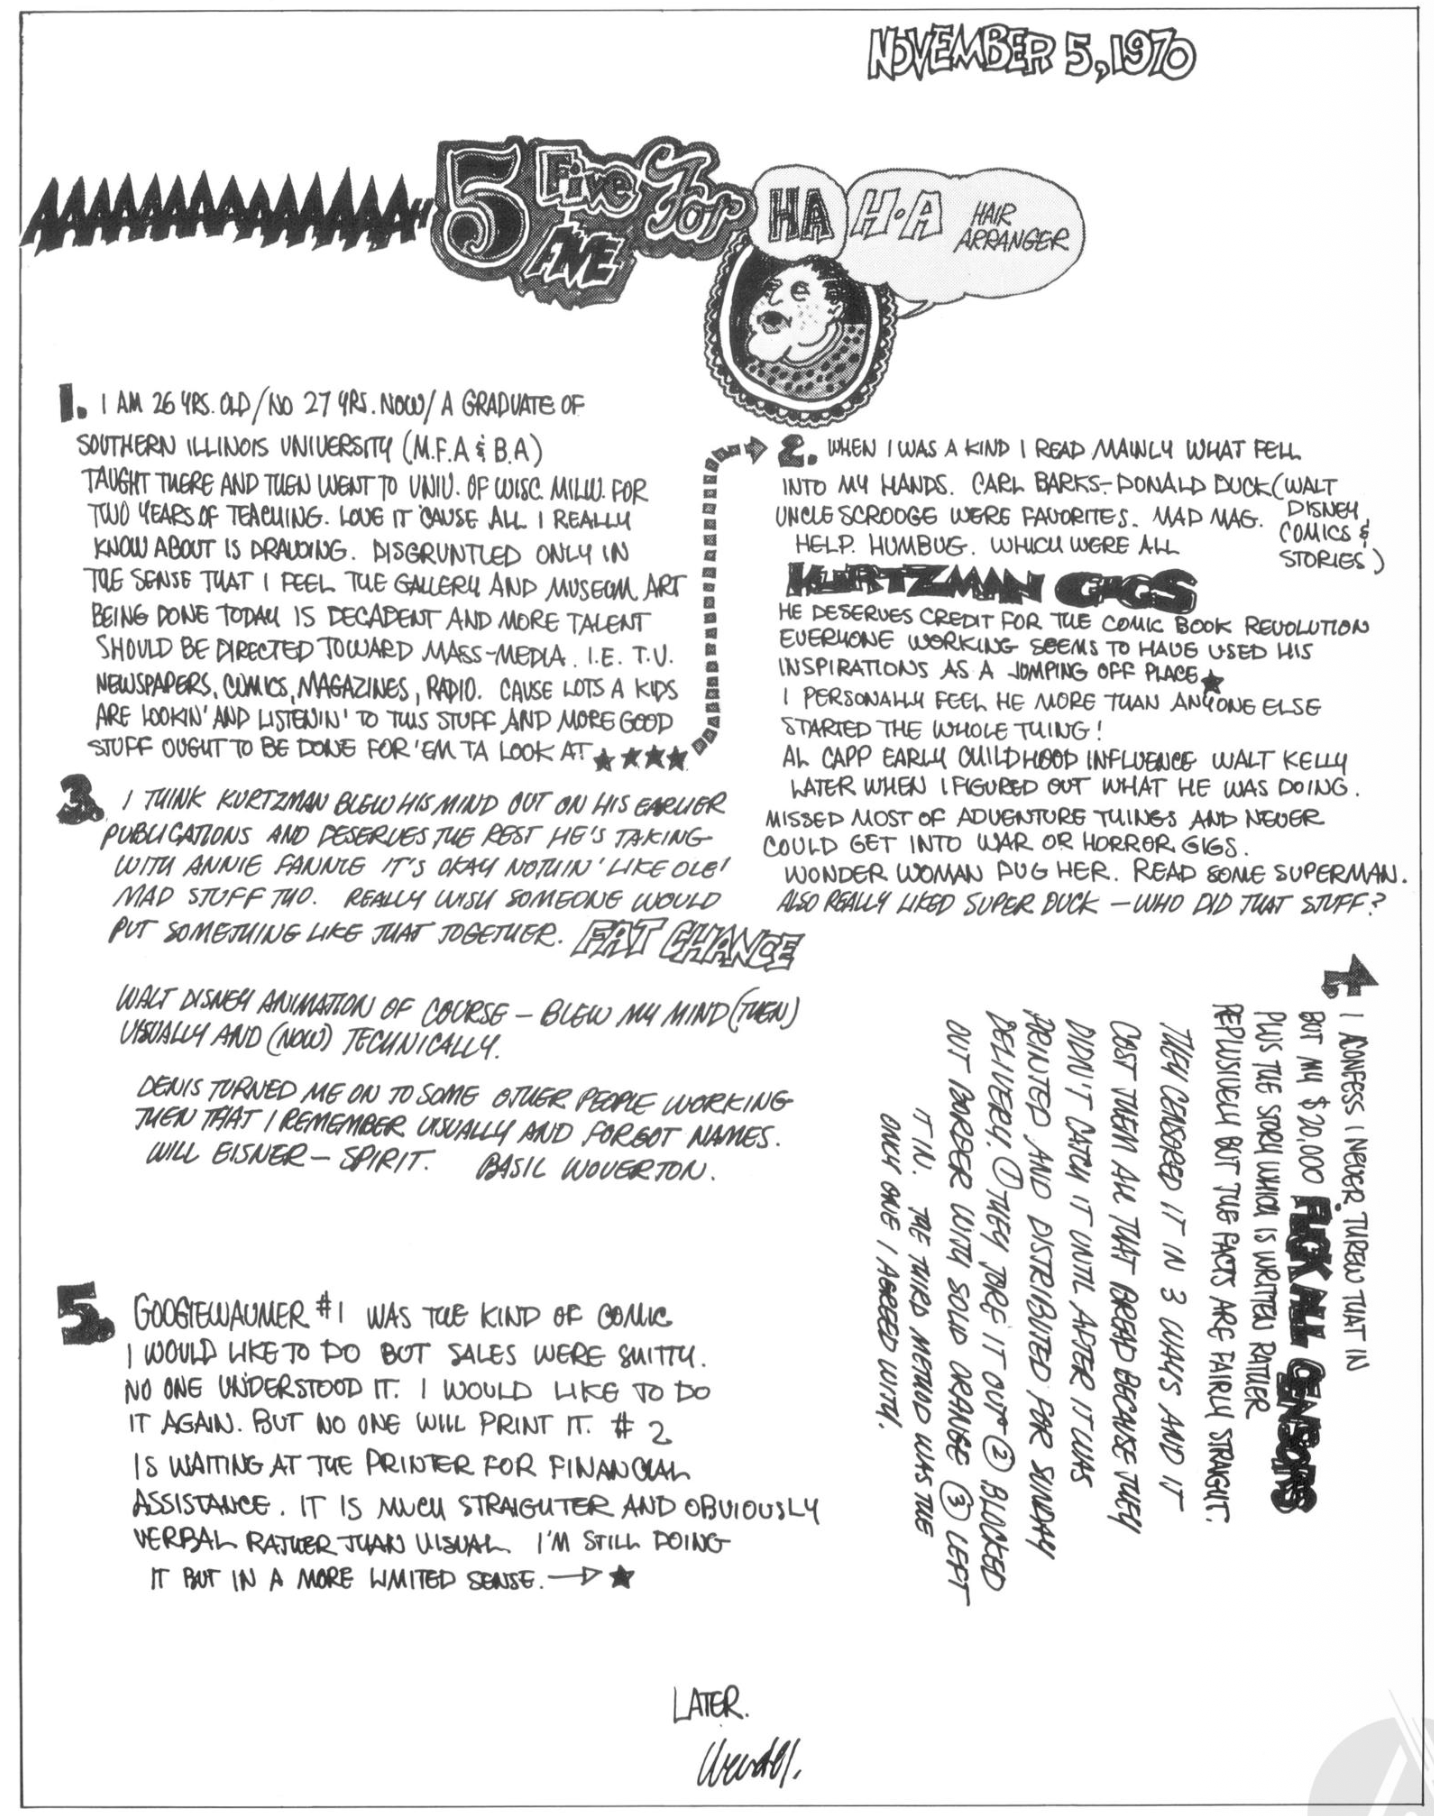 NOVEMBER 5, 1970
AAAAAAAAAAAAAA"
5 FIVE FOR
FIVE
HA H.A HAIR
ARRANGER
1. I AM 26 YRS. OLD/NO 27 YRS. NOW/A GRADUATE OF
SOUTHERN ILLINOIS UNIVERSITY (M.F.A & B.A)
TAUGHT THERE AND THEN WENT TO UNIV. OF WISC. MILW. FOR
TWO YEARS OF TEACHING. LOVE IT 'CAUSE ALL I REALLY
KNOW ABOUT IS DRAWING. DISGRUNTLED ONLY IN
THE SENSE THAT I FEEL THE GALLERY AND MUSEUM ART
BEING DONE TODAY IS DECADENT AND MORE TALENT
SHOULD BE DIRECTED TOWARD MASS-MEDIA. I.E. T.V.
NEWSPAPERS, COMICS, MAGAZINES, RADIO. CAUSE LOTS A KIDS
ARE LOOKIN' AND LISTENIN' TO THIS STUFF AND MORE GOOD
STUFF OUGHT TO BE DONE FOR 'EM TA LOOK AT ★★★★
2. WHEN I WAS A KIND I READ MAINLY WHAT FELL
INTO MY HANDS. CARL BARKS-DONALD DUCK (WALT
DISNEY COMICS & STORIES)
UNCLE SCROOGE WERE FAVORITES. MAD MAG.
HELP. HUMBUG. WHICH WERE ALL
KURTZMAN GIGS
HE DESERVES CREDIT FOR THE COMIC BOOK REVOLUTION
EVERYONE WORKING SEEMS TO HAVE USED HIS
INSPIRATIONS AS A JOMPING OFF PLACE ★
I PERSONALLY FEEL HE MORE THAN ANYONE ELSE
STARTED THE WHOLE THING!
AL CAPP EARLY CHILDHOOD INFLUENCE WALT KELLY
LATER WHEN I FIGURED OUT WHAT HE WAS DOING.
MISSED MOST OF ADVENTURE THINGS AND NEVER
COULD GET INTO WAR OR HORROR GIGS.
WONDER WOMAN DUG HER. READ SOME SUPERMAN.
ALSO REALLY LIKED SUPER DUCK — WHO DID THAT STUFF?
3. I THINK KURTZMAN BLEW HIS MIND OUT ON HIS EARLIER
PUBLICATIONS AND DESERVES THE REST HE'S TAKING
WITH ANNIE FANNIE IT'S OKAY NOTHIN' LIKE OLE'
MAD STUFF THO. REALLY WISH SOMEONE WOULD
PUT SOMETHING LIKE THAT TOGETHER. FAT CHANCE
WALT DISNEY ANIMATION OF COURSE — BLEW MY MIND (THEN)
VISUALLY AND (NOW) TECHNICALLY.
DENIS TURNED ME ON TO SOME OTHER PEOPLE WORKING
THEN THAT I REMEMBER VISUALLY AND FORGOT NAMES.
WILL EISNER — SPIRIT. BASIL WOVERTON.
4. I CONFESS I NEVER THREW THAT IN
BUT MY $20,000 FUCK ALL CENSORS
PLUS THE STORY WHICH IS WRITTEN RATHER
REPLUSIVELY BUT THE FACTS ARE FAIRLY STRAIGHT.
THEY CENSORED IT IN 3 WAYS AND IT
COST THEM ALL THAT BREAD BECAUSE THEY
DIDN'T CATCH IT UNTIL AFTER IT WAS
PRINTED AND DISTRIBUTED FOR SUNDAY
DELIVERY. ① THEY TORE IT OUT ② BLOCKED
OUT BORDER WITH SOLID ORANGE ③ LEFT
IT IN. THE THIRD METHOD WAS THE
ONLY ONE I AGREED WITH.
5. GOOGIEWAUMER #1 WAS THE KIND OF COMIC
I WOULD LIKE TO DO BUT SALES WERE SHITTY.
NO ONE UNDERSTOOD IT. I WOULD LIKE TO DO
IT AGAIN. BUT NO ONE WILL PRINT IT. #2
IS WAITING AT THE PRINTER FOR FINANCIAL
ASSISTANCE. IT IS MUCH STRAIGHTER AND OBVIOUSLY
VERBAL RATHER THAN VISUAL. I'M STILL DOING
IT BUT IN A MORE LIMITED SENSE. → ★
LATER.